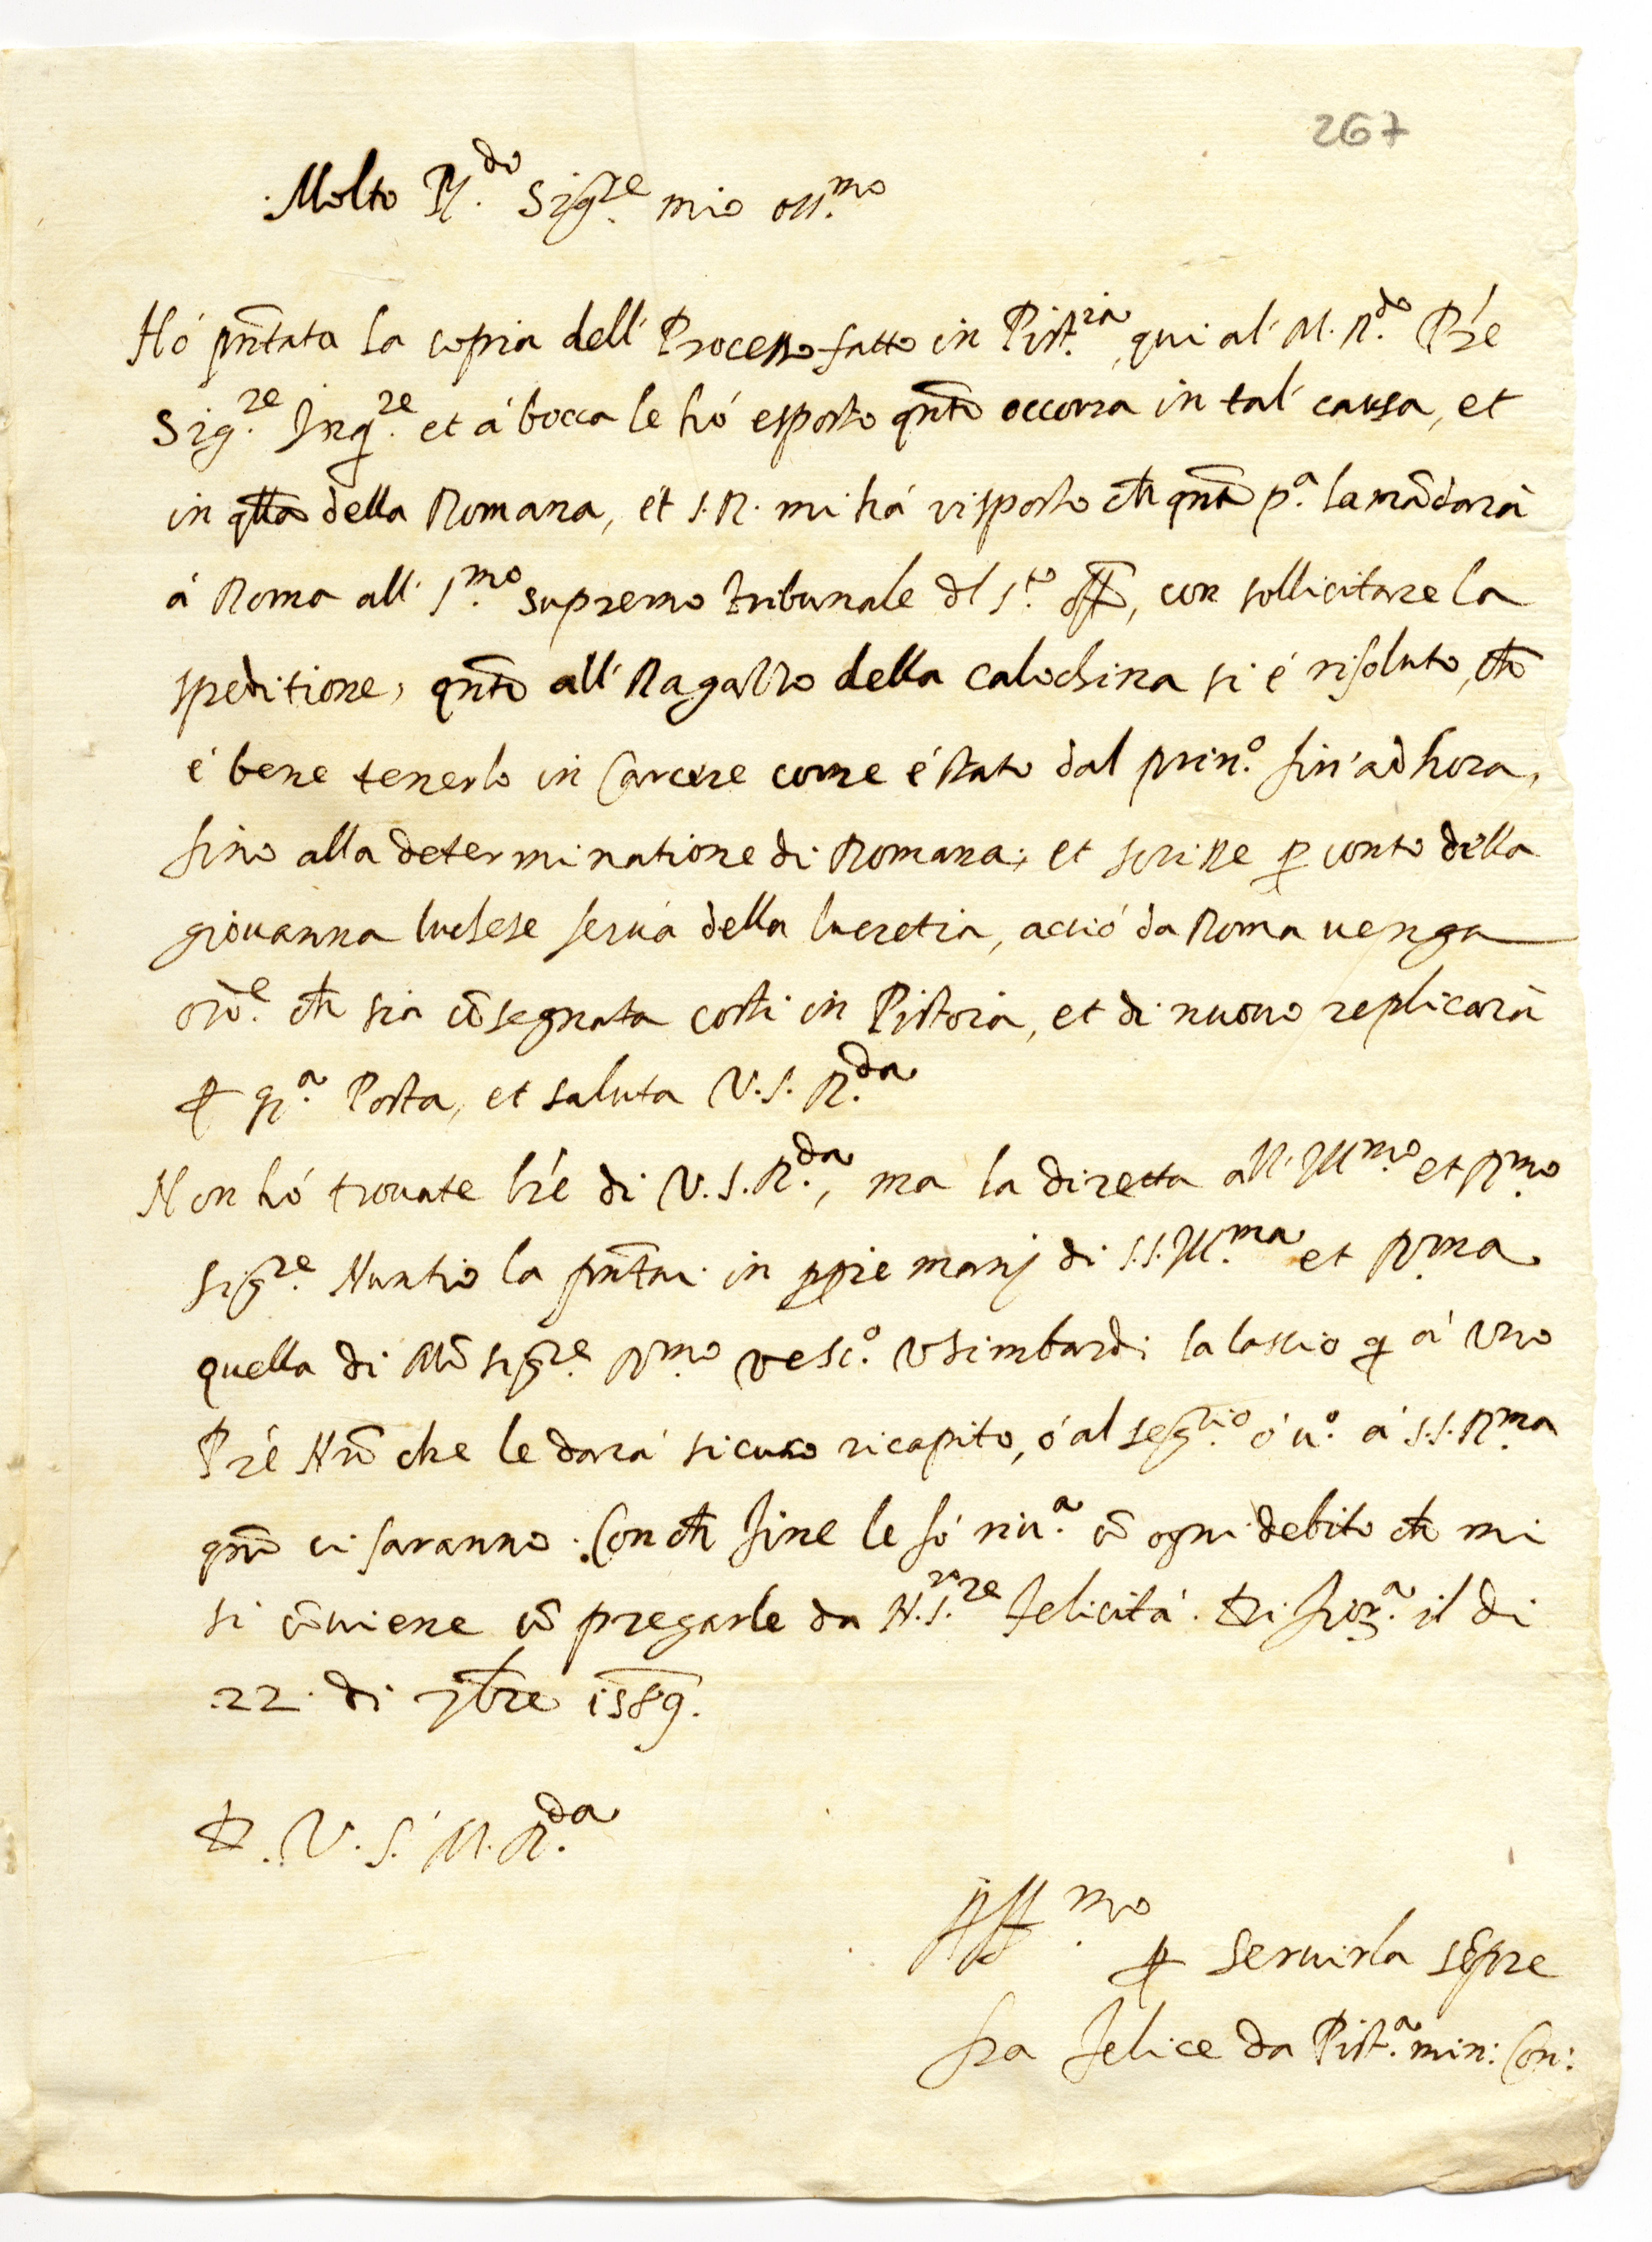 267
Molto R.do Sig.re mio oss.mo
Hó pn̄tata la copia dell' Processo fatto in Pist.ria qui al' M. R.do Pr̄e
Sig.re Inq.re et á bocca le hó esposto qn̄to occorra in tal' causa, et
in q̄lla della Romana, et S. R. mi há risposto ch̄ qn̄to p.a la mādarà
á Roma all' S.mo supremo tribunale dl S.to off̄, con sollicitare la
speditione, qn̄to all' Ragazzo della calochina si é risoluto, ch̄
é bene tenerlo in Carcere come é stato dal prin.o fin' ad hora,
fino alla determinatione di Romana; et scrisse ꝑ conto della
giouanna luchese serua della lucretia, acció da Roma uenga
ord.e ch̄ sia cōsegnata costi in Pistoia, et di nuouo replicarà
ꝑ q.a Posta, et saluta V. S. R.da
Non hó trouate lr̄e di V. S. R.da, ma la diretta all' Ill.mo et R.mo
Sig.re Nuntio la pn̄tai in ꝓprie manj di S. S. Ill.ma et R.ma
quella di Mōsig.re R.mo vesc.o Vsimbardi la lascio q á vno
Pr̄e Nr̄o che le dará sicuro ricapito, ó al seg.rio ó u.o á S. S. R.ma
qn̄o ci saranno. Con ch̄ fine le fó riu.a cō ogni debito ch̄ mi
si cōuiene cō pregarle da N. S.re felicitá. Di fior.a il di
22 di 7bre 1589.
D. V. S. M. R.da
Aff.mo
ꝑ seruirla sēpre
fra felice da Pist.a min: Con: